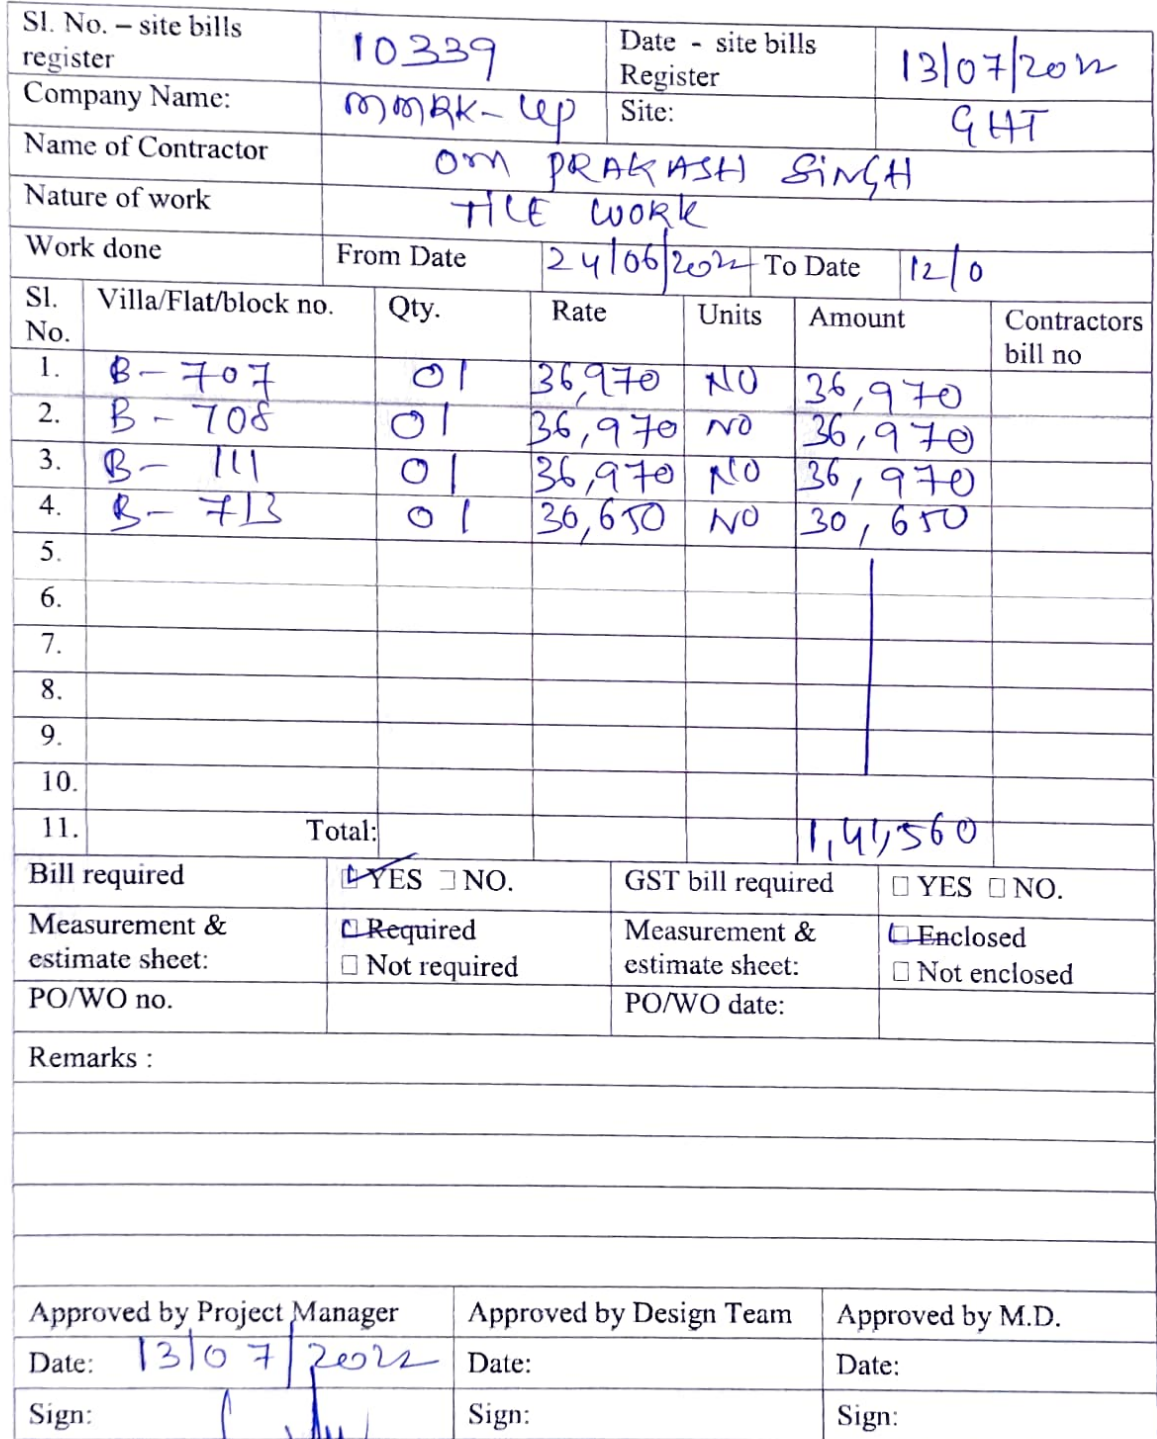 Sl. No. – site bills register 10339 Date - site bills Register 13/07/2022
Company Name: MMRK-UP Site: GHT
Name of Contractor OM PRAKASH SiNGH
Nature of work TILE WORK
Work done From Date 24/06/2022 To Date 12/0
Sl. No. Villa/Flat/block no. Qty. Rate Units Amount Contractors bill no
1. B-707 01 36,970 NO 36,970
2. B-708 01 36,970 NO 36,970
3. B-111 01 36,970 NO 36,970
4. B-713 01 30,650 NO 30,650
5.
6.
7.
8.
9.
10.
11. Total: 1,41,560
Bill required YES NO. GST bill required YES NO.
Measurement & estimate sheet: Required Not required Measurement & estimate sheet: Enclosed Not enclosed
PO/WO no. PO/WO date:
Remarks :
Approved by Project Manager Approved by Design Team Approved by M.D.
Date: 13/07/2022 Date: Date:
Sign: Sign: Sign: